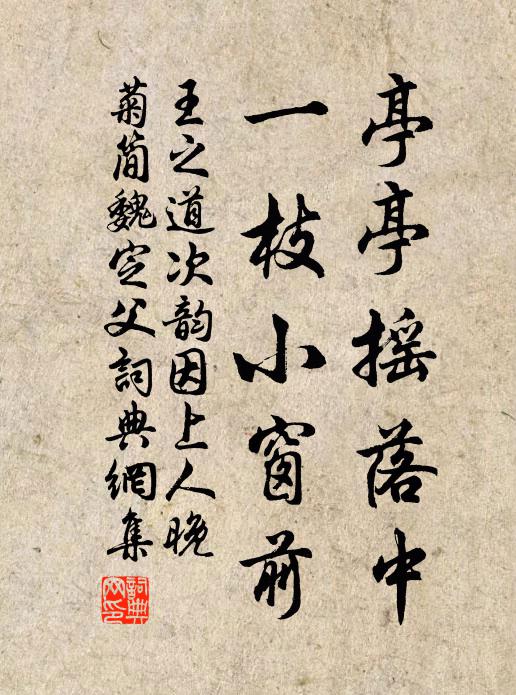 亭亭搖落中
一枝小窗前
王之道次韵因上人晚
菊簡魏定父詞典網集
詞典